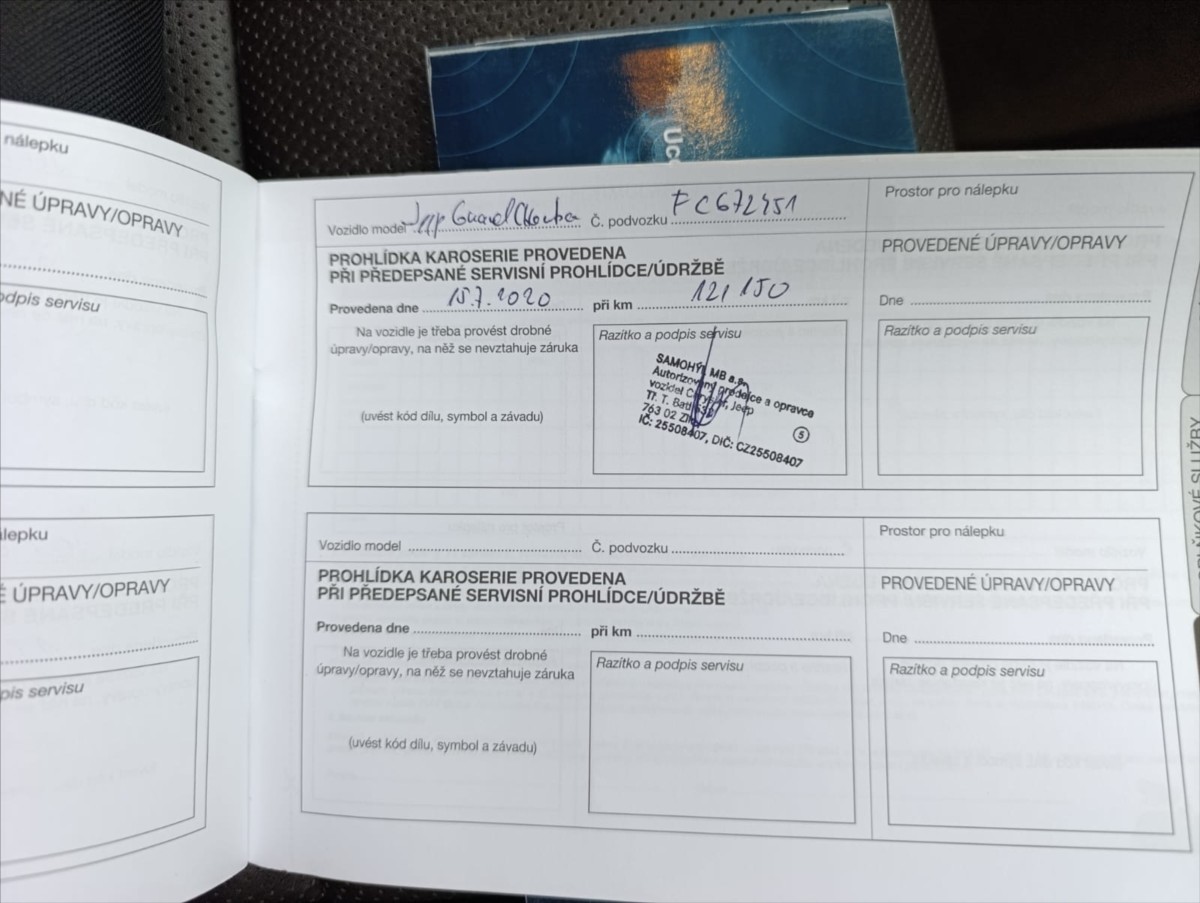 Uc
nálepku
NÉ ÚPRAVY/OPRAVY
odpis servisu
álepku
É ÚPRAVY/OPRAVY
pis servisu
Vozidlo model Jeep Grand Cherokee Č. podvozku FC672451
Prostor pro nálepku
PROHLÍDKA KAROSERIE PROVEDENA
PŘI PŘEDEPSANÉ SERVISNÍ PROHLÍDCE/ÚDRŽBĚ
PROVEDENÉ ÚPRAVY/OPRAVY
Provedena dne 15.7.2020 při km 121 150
Dne
Na vozidle je třeba provést drobné
úpravy/opravy, na něž se nevztahuje záruka
(uvést kód dílu, symbol a závadu)
Razítko a podpis servisu
SAMOHÝL MB a.s.
Autorizovaný prodejce a opravce
vozidel Chrysler, Jeep
Tř. T. Bati
763 02 Zlín
5
IČ: 25508407, DIČ: CZ25508407
Razítko a podpis servisu
Vozidlo model Č. podvozku
Prostor pro nálepku
PROHLÍDKA KAROSERIE PROVEDENA
PŘI PŘEDEPSANÉ SERVISNÍ PROHLÍDCE/ÚDRŽBĚ
PROVEDENÉ ÚPRAVY/OPRAVY
Provedena dne při km
Dne
Na vozidle je třeba provést drobné
úpravy/opravy, na něž se nevztahuje záruka
(uvést kód dílu, symbol a závadu)
Razítko a podpis servisu
Razítko a podpis servisu
SLUŽBY